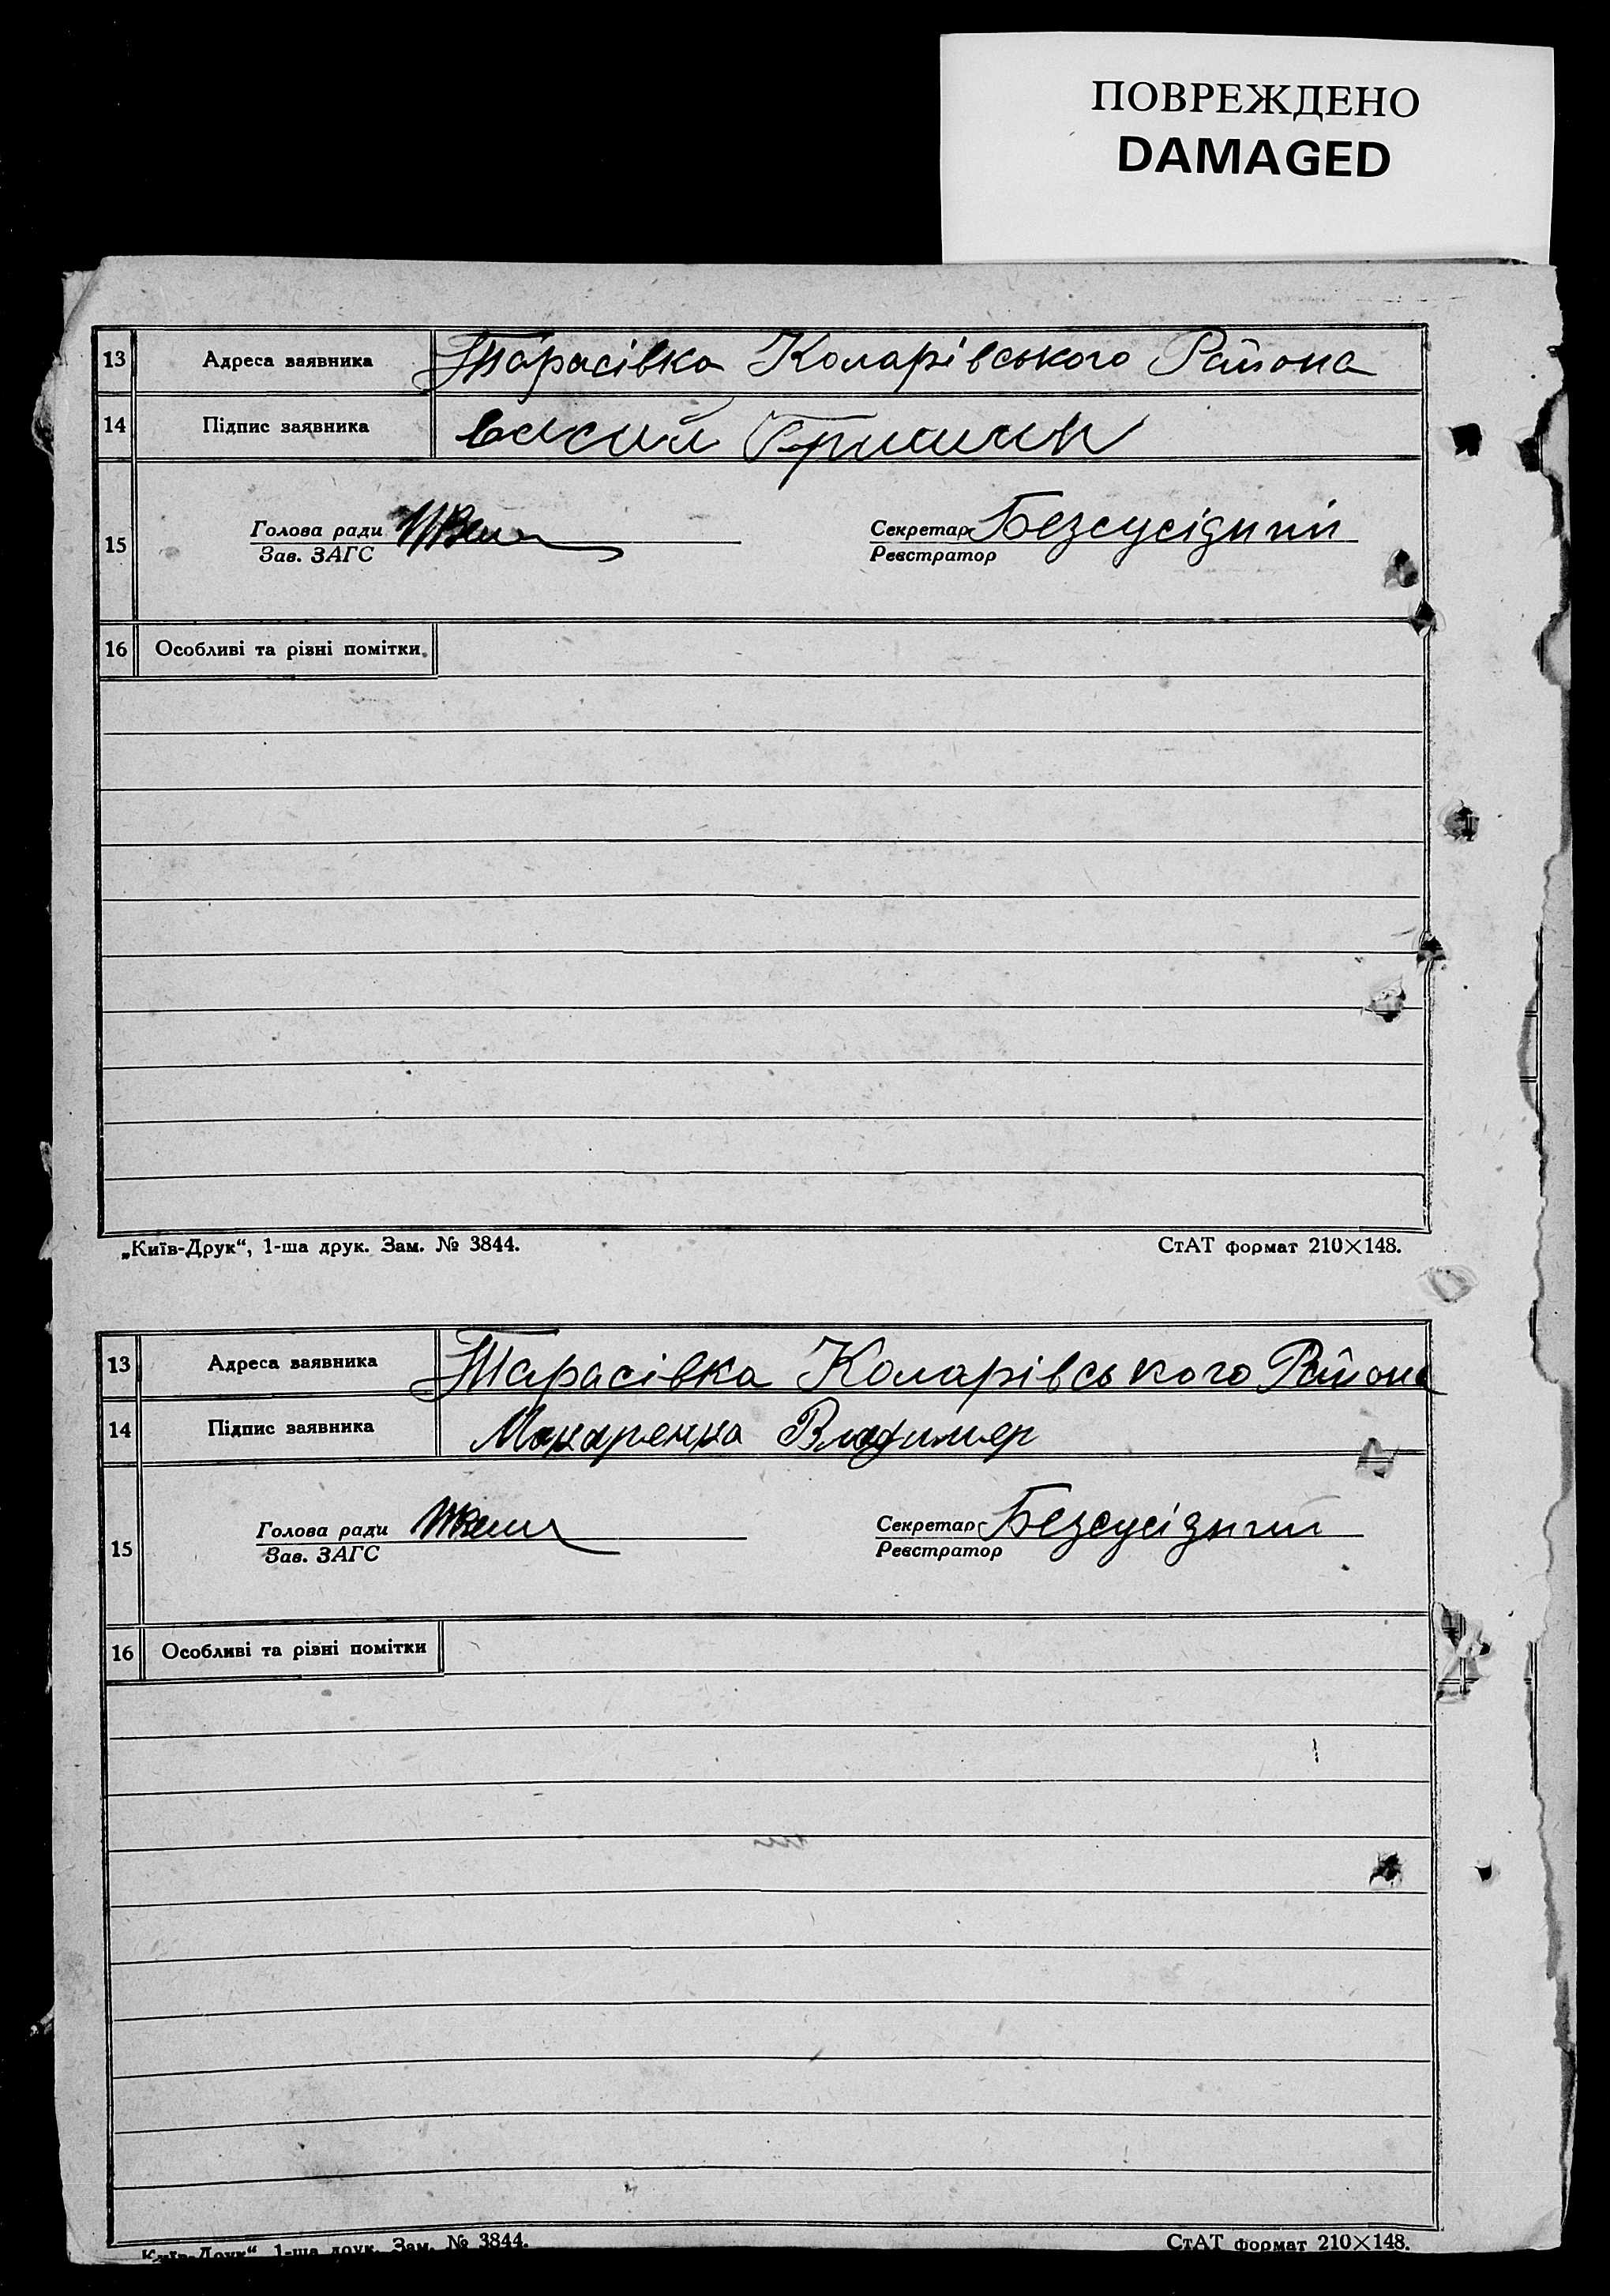 ПОВРЕЖДЕНО
DAMAGED
13 Адреса заявника Тарасівка Коларівського Района
14 Підпис заявника
15 Голова ради Секретар Безсусідний
Зав. ЗАГС Реєстратор
16 Особливі та різні помітки
„Київ-Друк“, 1-ша друк. Зам. № 3844. СтАТ формат 210×148.
13 Адреса заявника Тарасівка Коларівського Района
14 Підпис заявника Макаренко Владимер
15 Голова ради Секретар Безсусідний
Зав. ЗАГС Реєстратор
16 Особливі та різні помітки
Київ-Друк“, 1-ша друк. Зам. № 3844. СтАТ формат 210×148.